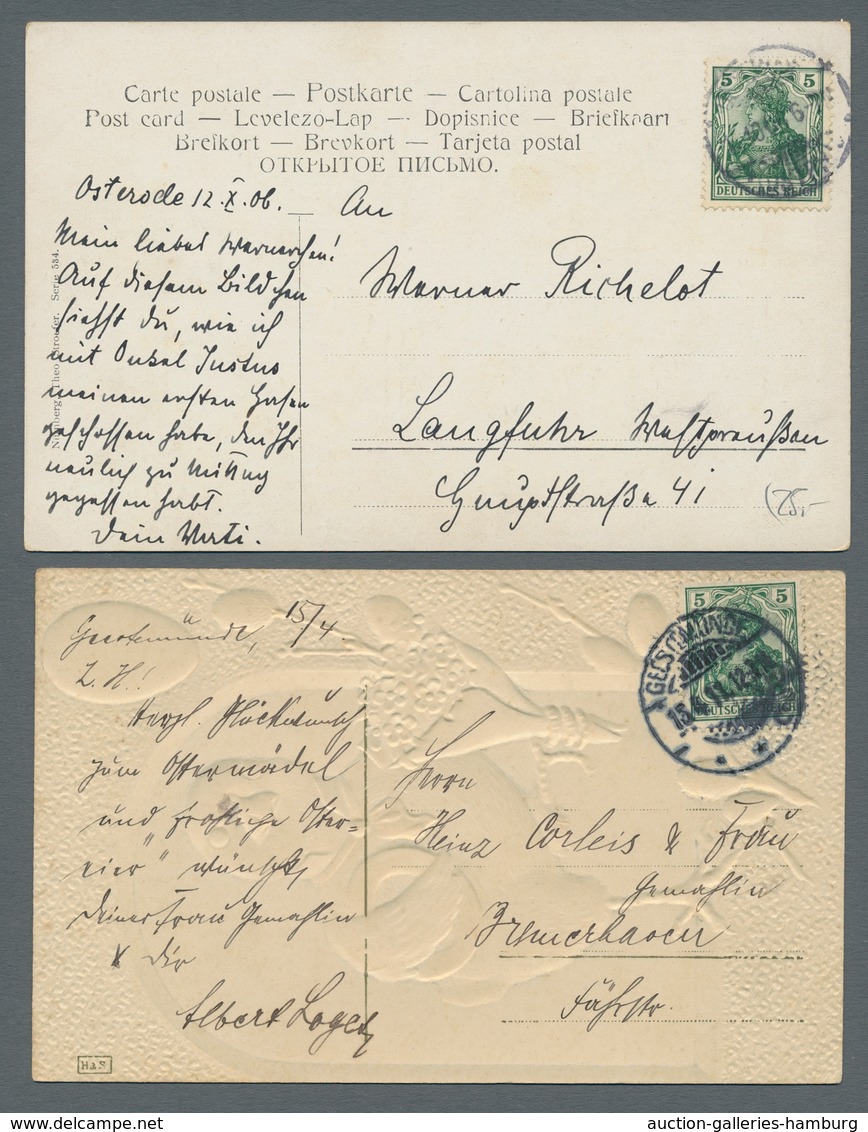 Carte postale — Postkarte — Cartolina postale
Post card — Levelezo-Lap — Dopisnice — Briefkaart
Brefkort — Brevkort — Tarjeta postal
ОТКРЫТОЕ ПИСЬМО.
5 5
DEUTSCHES REICH
Osterode 12. X. 06.
Mein liebes Wernerchen!
Auf diesem Bildchen
siehst du, wie ich
mit Onkel Justus
meinen ersten Hasen
geschossen habe, den Ihr
neulich zu Mittag
gegessen habt.
Dein Vati.
Nürnberg Theo Stroefer. Serie 534.
An
Werner Richelot
Langfuhr Westpreußen
Hauptstraße 41
(25,-
5 5
DEUTSCHES REICH
GEESTEMÜNDE
15.4.11.12-1N
Geestemünde, 15/4.
L. H.!
Herzl. Glückwunsch
zum Ostermädel
und "fröhliche Oster=
eier" wünscht
Deiner Frau Gemahlin
Dir
Albert
Herrn
Heinz Corleis & Frau
Gemahlin
Bremerhaven
Fährstr.
H&S
auction-galleries-hamburg